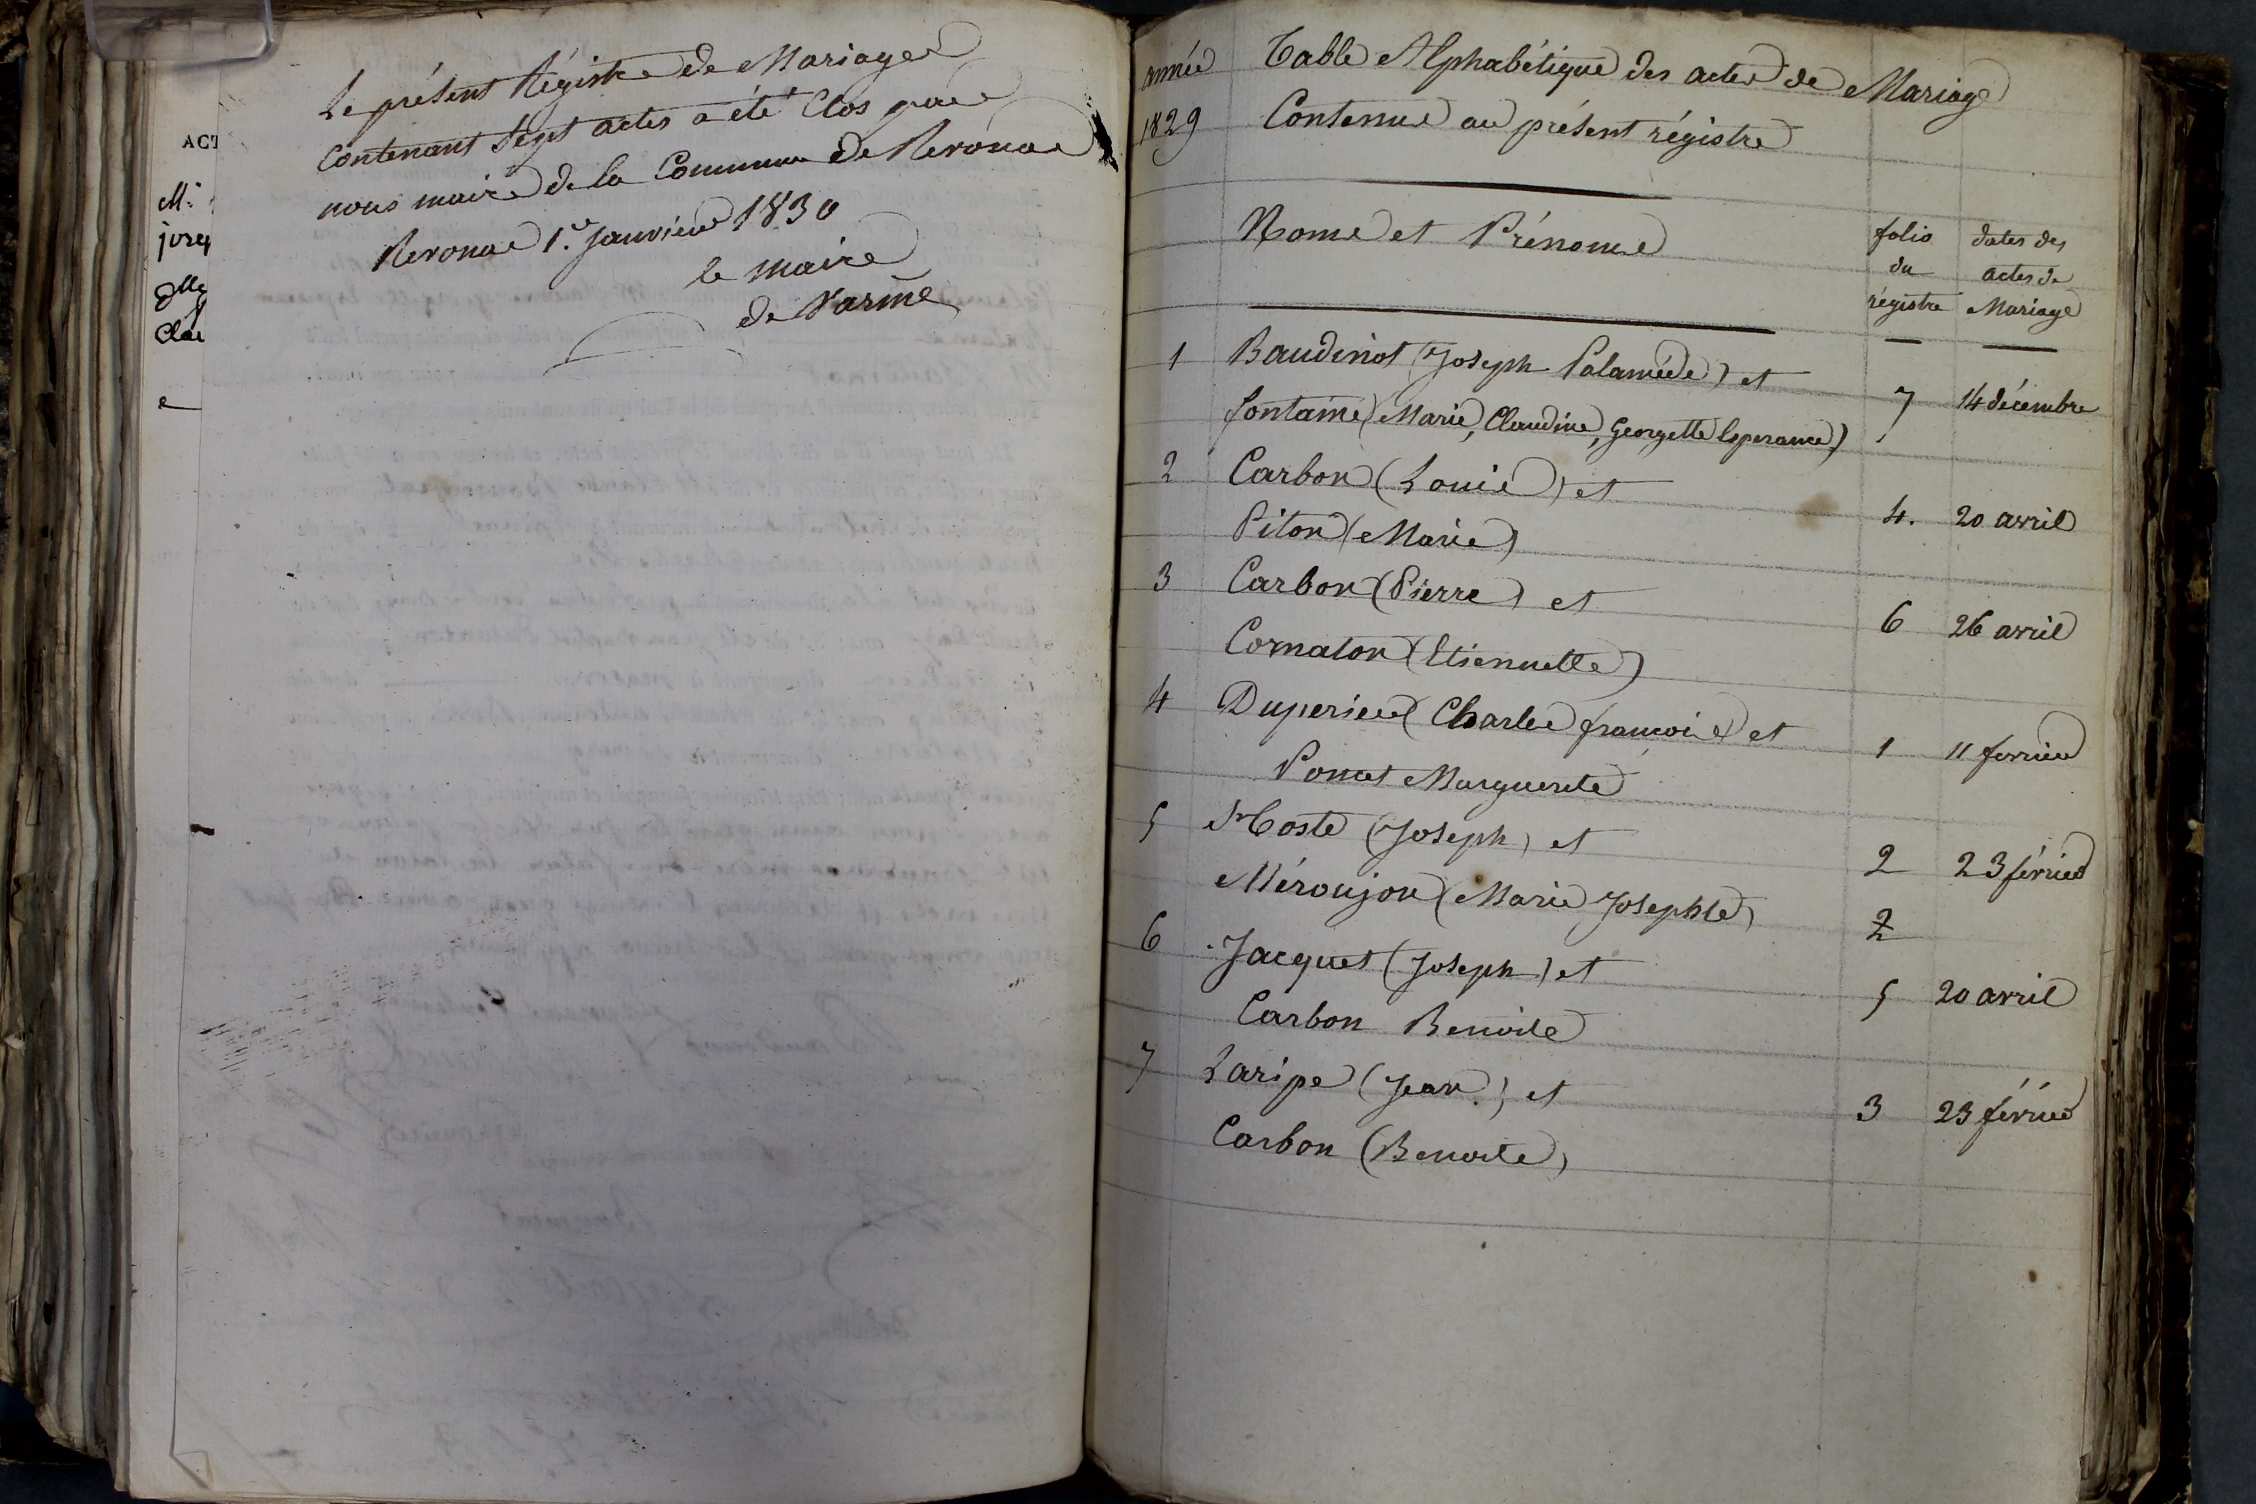 Le présent Régistre de Mariages
contenant sept actes a été Clos par
nous maire de la Commune de Neronde
1.er Janvier 1830
le maire
de
ACT
année
1829
Table Alphabétique des actes de Mariage
Contenus au présent régistre
Noms et Prénoms
folio du régistre
dates des actes de Mariage
1 Baudinot (Joseph Palamède) et
fontaine (Marie, Claudine, Georgette Esperance) 7 14 décembre
2 Carbon (Louis) et
Piton (Marie) 4. 20 avril
3 Carbon (Pierre) et
Cornaton (Etiennette) 6 26 avril
4 Duperier (Charles françois) et
Poncet Marguerite 1 11 fevrier
5 Coste (Joseph) et
(Marie Josephte) 2 23 février
2
6 Jacquet (Joseph) et
Carbon Benoite 5 20 avril
7 Laripe (Jean) et
Carbon (Benoite) 3 23 février